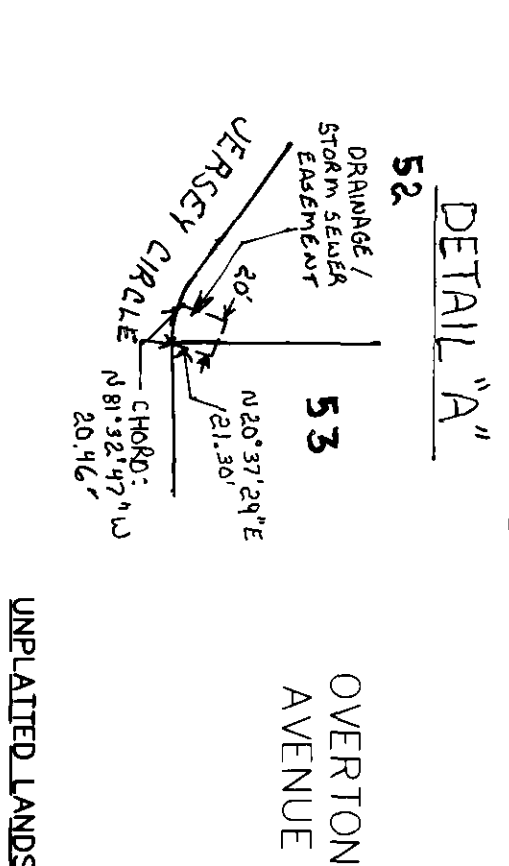 DETAIL "A"
52
DRAINAGE /
STORM SEWER
EASEMENT
JERSEY CIRCLE
20'
53
N20°37'29"E
121.30'
CHORD:
N81°32'47"W
20.46'
OVERTON
AVENUE
UNPLATTED LANDS